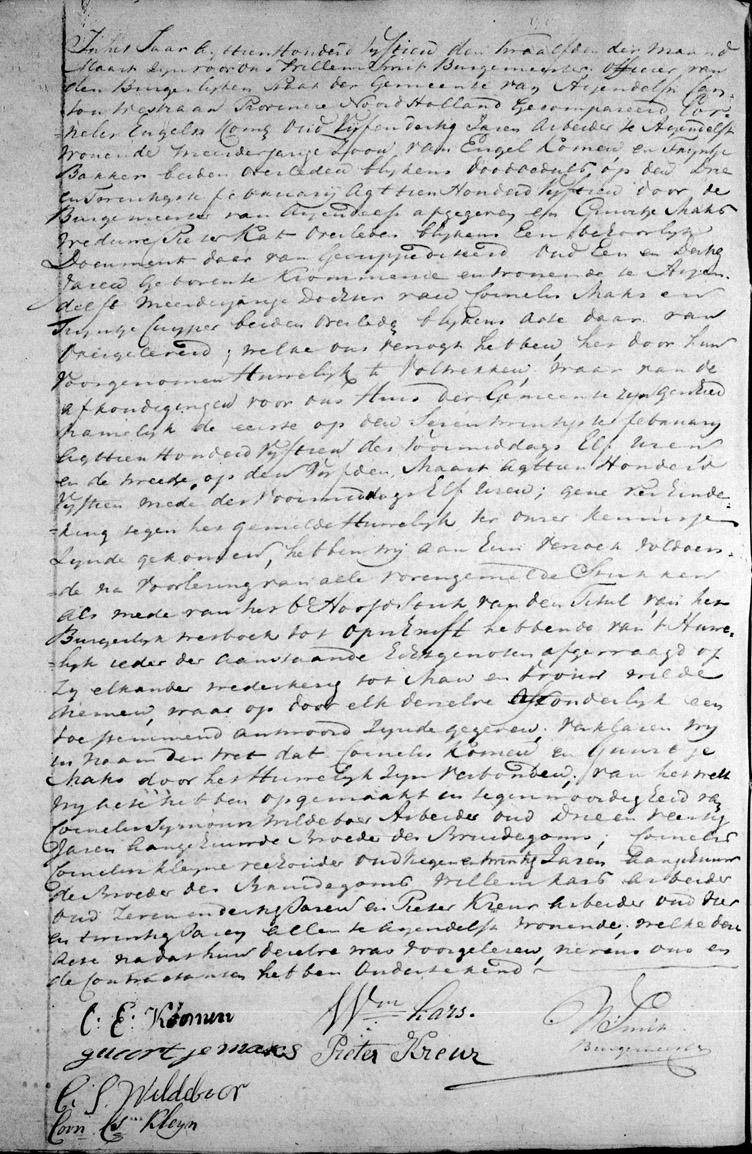 In het Jaar agttien Honderd vyftien den twaalfden der maand
Maart Zyn voor ons Willem Smit Burgemeester Officier van
den Burgerlyken Staat der Gemeente van Assendelft Can-
ton Westzaan Provincie Noord Holland Gecompareerd Cor-
nelis Engelsz Komen Oud vyfendertig Jaren Arbeider te Assendelft
wonende meerderjarige Zoon van Engel Komen en Tryntje
Bakker beiden overleden blykens doodcedul, op den Drie
en Twintigste february agttien Honderd vyftien door de
Burgemeester van Assendelft afgegeven en Guurtje Maks
weduwe Pieter Kat overleden blykens Een behoorlyk
Document daar van Geexpedieerd Oud Een en Dertig
Jaren Geboren te Krommenie en wonende te Assen
delft meerderjarige Dochter van Cornelis Maks en
Tryntje Cuyper beiden Overleden blykens Acte daar van
Overgeleverd; welke ons verzogt hebben het door hun
Voorgenomen Huwelyk te Voltrekken, waar van de
afkondigingen voor ons Huis der Gemeente zyn Geschied
namelyk de eerste op den Sevenentwintigste february
agttien Honderd Vyftien des Voormiddags Elf Uren
en de tweede, op den Vyfden Maart agttien Honderd
Vyftien mede des Voormiddags Elf Uren; gene verhinde-
ring tegen het gemelde Huwelyk ter onser kennisse
Zynde gekomen, hebben wy aan hun Verzoek voldoen-
de na Voorlezing van alle vorengemelde Stukken
als mede van het 6e Hoofdstuk van den titul van het
Burgerlyk wetboek tot Opschrift hebbende van 't Huwe-
lyk ieder der aanstaande Echtgenoten afgevraagd of
Zy elkander wederkerig tot Man en Vrouw wilde
nemen, waar op door elk derzelve afzonderlyk een
toestemmend antwoord Zynde gegeven. Verklaren wy
in naam der wet dat Cornelis Komen en Guurtje
Maks door het Huwelyk Zyn Verbonden, van het welk
wy Acte hebben opgemaakt in tegenwoordigheid van
Cornelis Symonsz Wildeboer Arbeider oud Drie en veertig
Jaren Aangehuwde Broeder des Bruidegoms; Cornelis
Cornelisz Kleyne veehouder oud negenentwintig Jaren Aangehuw
de Broeder des Bruidegoms Willem Kars Arbeider
Oud Zevenendertig Jaren en Pieter Kreur Arbeider oud vier
en twintig Jaren allen te Assendelft Wonende, welke deze
Acte na dat hun dezelve was voorgelezen, nevens ons en
de Contractanten hebben Ondertekend
C. E. Komen Wm Kars. W. Smit
guurtje maks Pieter Kreur Burgemeester
C. S. Wildeboer
Corn. Cs Kleyn